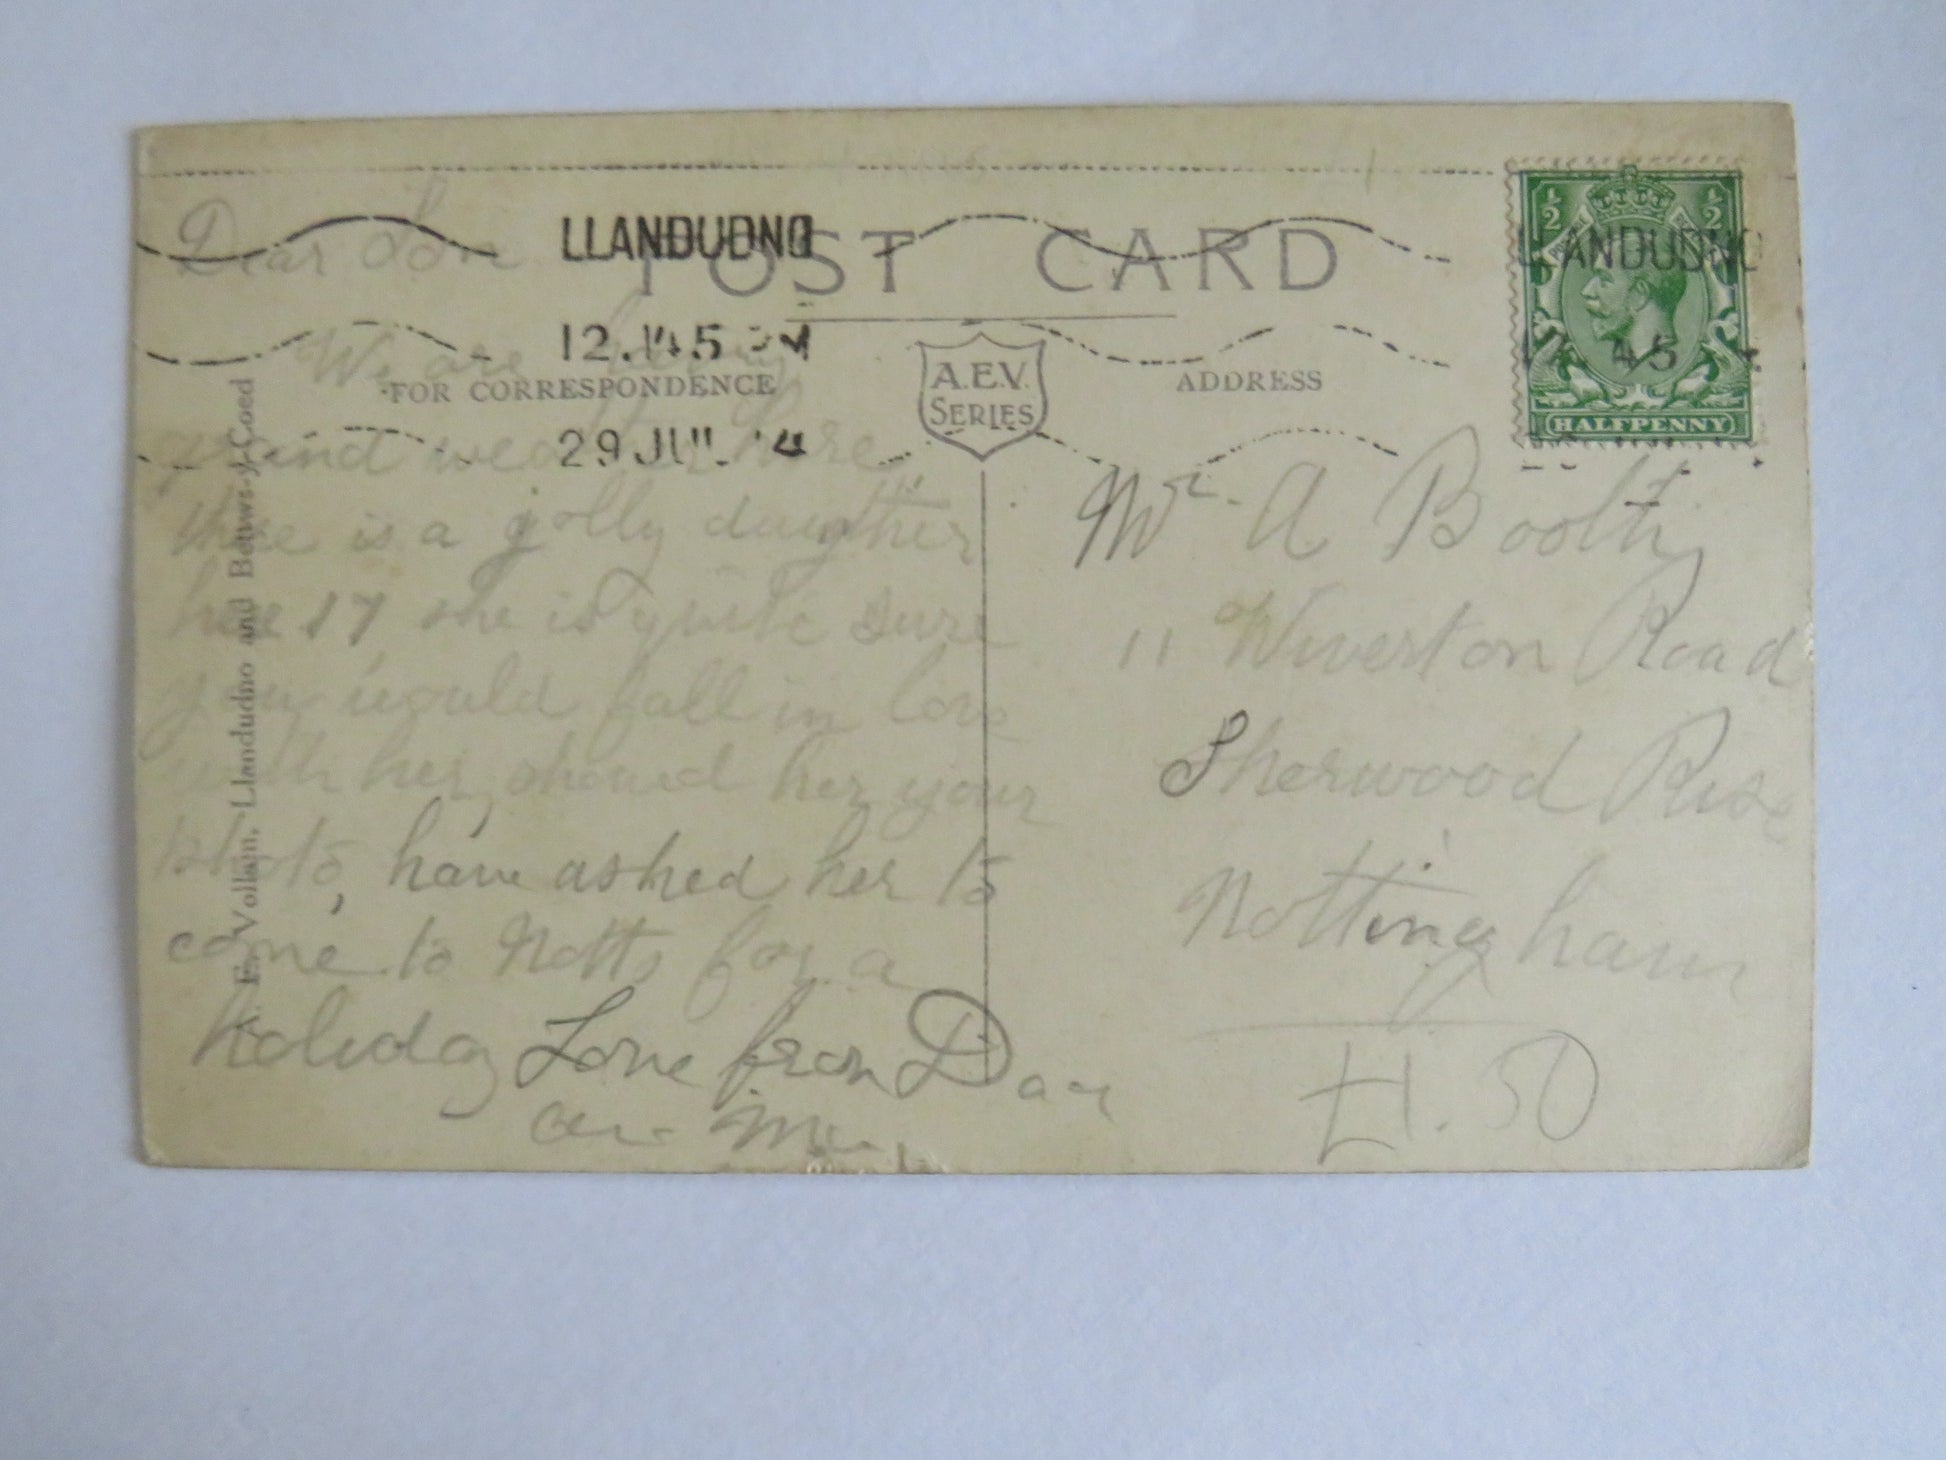 LLANDUDNO
12.45 PM
29 JUL 14
POST CARD
FOR CORRESPONDENCE
A.E.V.
SERIES
ADDRESS
½ ½
LLANDUDNO
HALFPENNY
Dear Son
We are having
grand weather here
there is a jolly daughter
here 17 she is quite sure
you would fall in love
with her, showed her your
photo, have asked her to
come to Notts for a
holiday Love from Dad
Mr. A Booth
11 Wiverton Road
Sherwood Rise
Nottingham
£1.50
E. Vollam, Llandudno and Bettws-y-Coed